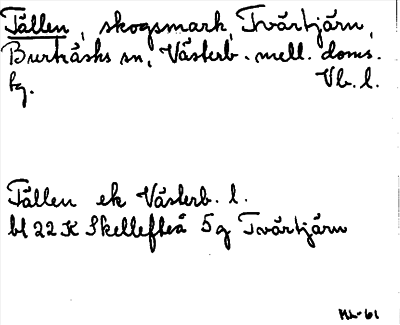 Tållen, skogsmark, Tvärtjärn,
Burträsks sn, Västerb. mell. doms.
tg. Vb. l.
Tållen ek Västerb. l.
bl 22 K Skellefteå 5g Tvärtjärn
ML-61